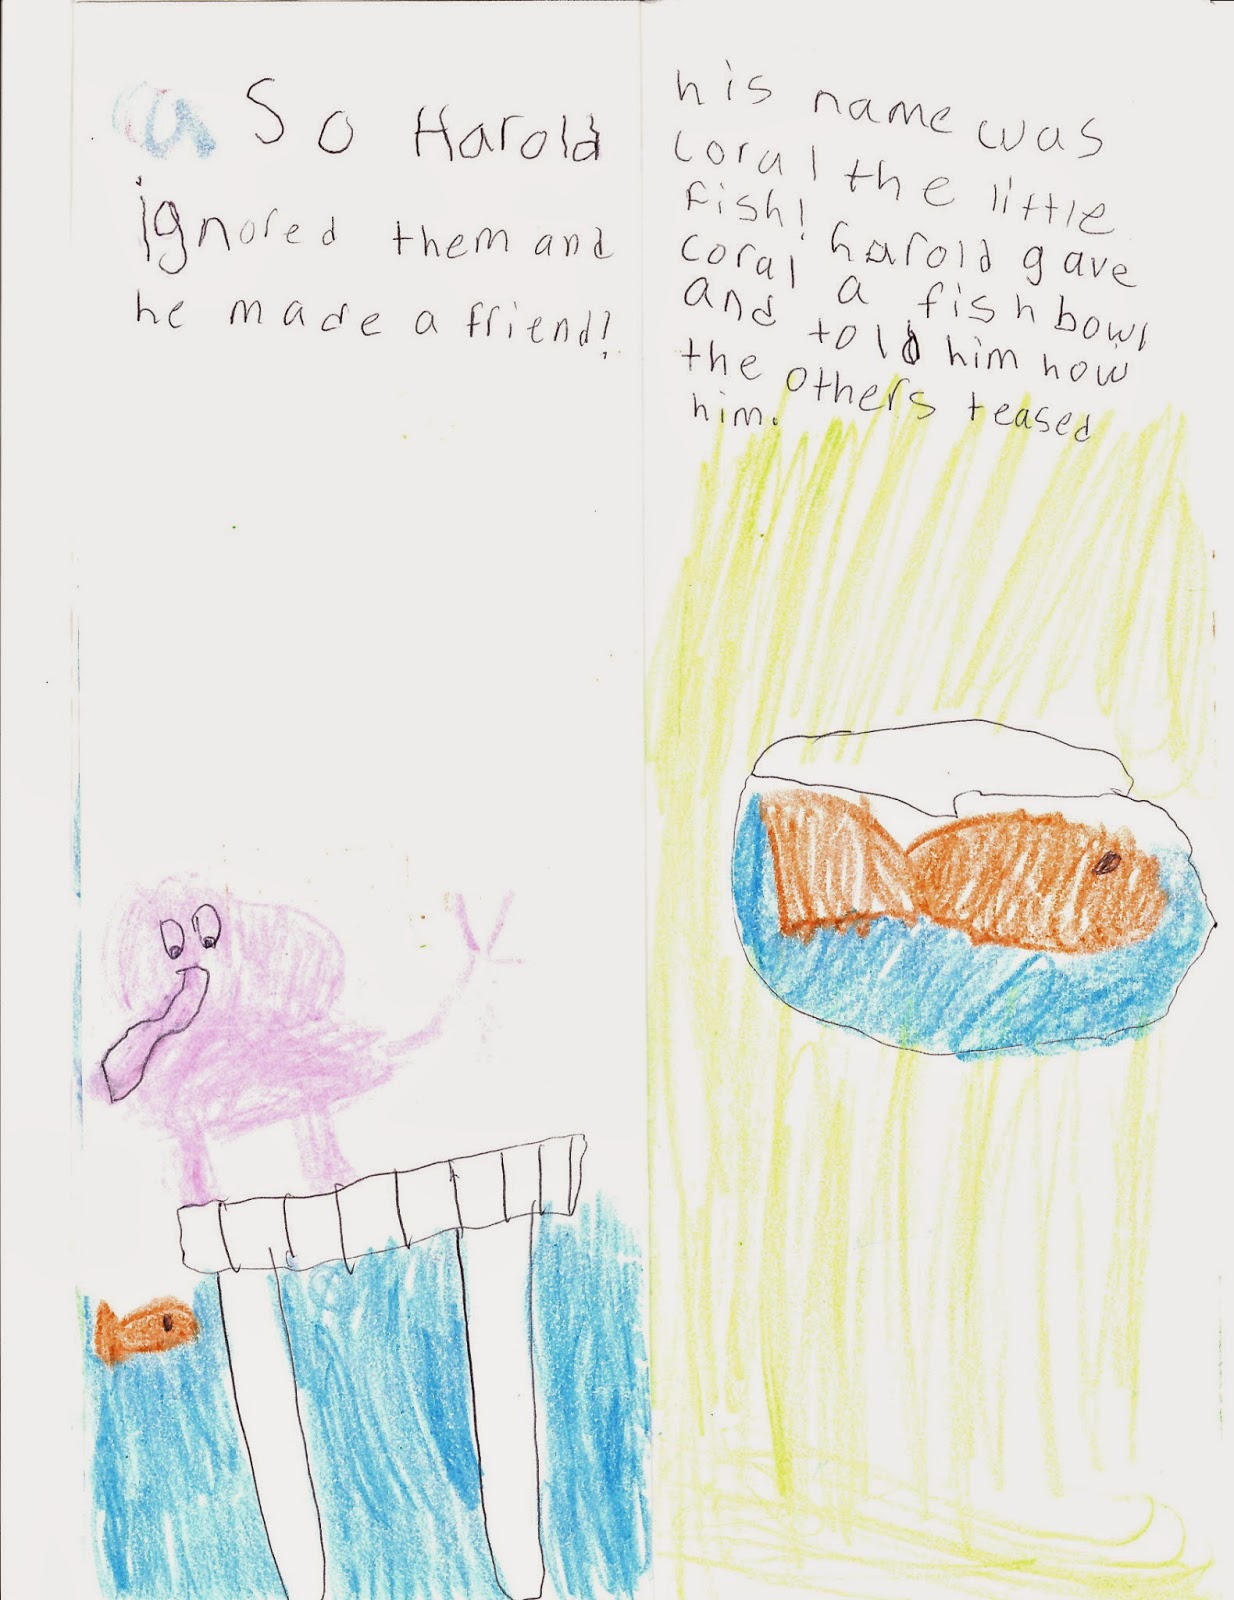 So Harold
ignored them and
he made a friend!
his name was
coral the little
fish! harold gave
coral a fishbowl
and told him how
the others teased
him.